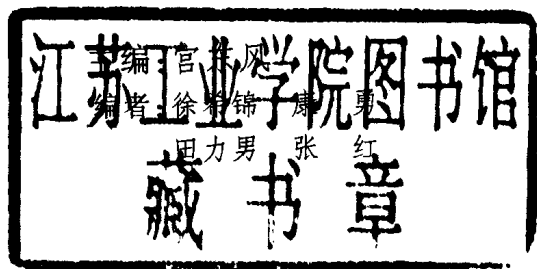 江苏工业学院图书馆
藏书章
主编 宫东风
编者 徐 锦 康 勇
田力男 张 红